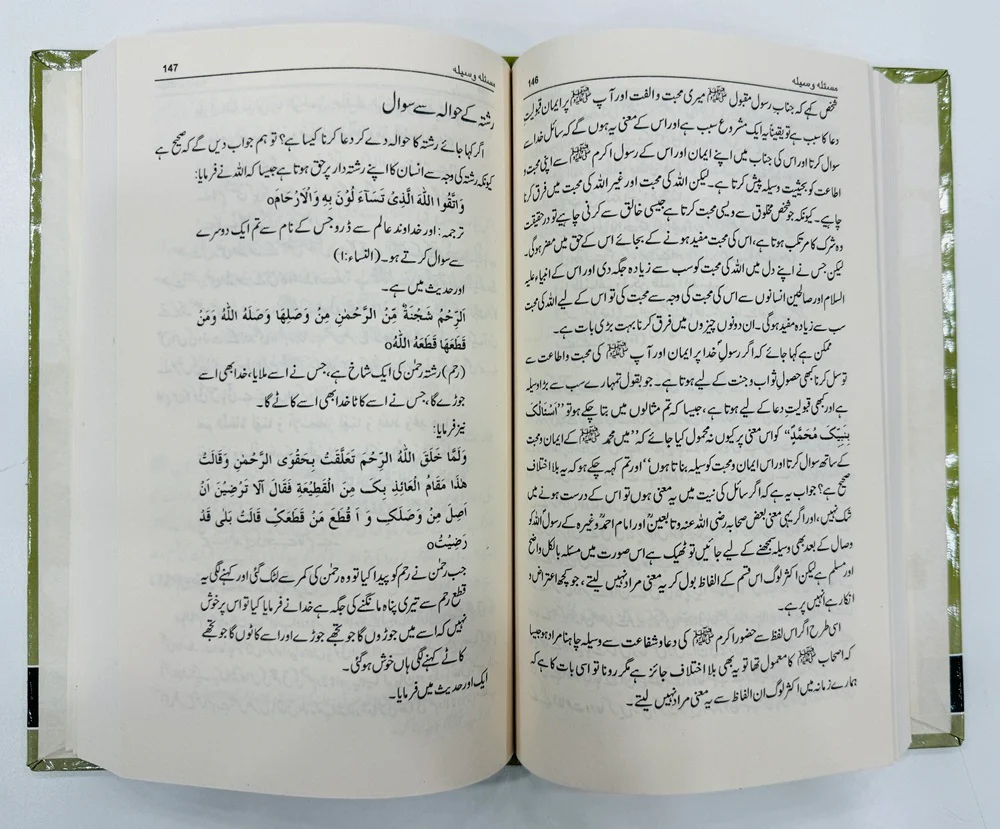 مسئلہ وسیلہ 146
شخص کہے کہ جناب رسول مقبول ﷺ میری محبت و الفت اور آپ ﷺ پر ایمان قبولیت
دعا کا سبب ہے تو یقیناً یہ ایک مشروع سبب ہے اور اس کے معنی یہ ہوں گے کہ سائل خدا سے
سوال کرتا اور اس کی جناب میں اپنے ایمان اور اس کے رسول اکرم ﷺ سے اپنی محبت و
اطاعت کو بحیثیت وسیلہ پیش کرتا ہے۔ لیکن اللہ کی محبت اور غیر اللہ کی محبت میں فرق کرنا
چاہیے۔ کیونکہ جو شخص مخلوق سے ویسی محبت کرتا ہے جیسی خالق سے کرنی چاہیے تو درحقیقت
وہ شرک کا مرتکب ہوتا ہے، اس کی محبت مفید ہونے کے بجائے اس کے حق میں مضر ہوگی۔
لیکن جس نے اپنے دل میں اللہ کی محبت کو سب سے زیادہ جگہ دی اور اس کے انبیاء علیہ
السلام اور صالحین انسانوں سے اس کی محبت کی وجہ سے محبت کی تو اس کے لیے اللہ کی محبت
سب سے زیادہ مفید ہوگی۔ ان دونوں چیزوں میں فرق کرنا بہت بڑی بات ہے۔
ممکن ہے کہا جائے کہ اگر رسولِ خدا پر ایمان اور آپ ﷺ کی محبت و اطاعت سے
توسل کرنا کبھی حصولِ ثواب و جنت کے لیے ہوتا ہے۔ جو بقول تمہارے سب سے بڑا وسیلہ
ہے اور کبھی قبولیتِ دعا کے لیے ہوتا ہے، جیسا کہ تم مثالوں میں بتا چکے ہو تو ’’اَسْئَالُکَ
بِنَبِیِّکَ مُحَمَّدٍ‘‘ کو اس معنی پر کیوں نہ محمول کیا جائے کہ ’’میں محمد ﷺ کے ایمان و محبت
کے ساتھ سوال کرتا اور اس ایمان و محبت کو وسیلہ بناتا ہوں‘‘ اور تم کہہ چکے ہو کہ یہ بلا اختلاف
صحیح ہے؟ جواب یہ ہے کہ اگر سائل کی نیت میں یہ معنی ہوں تو اس کے درست ہونے میں
شک نہیں، اور اگر یہی معنی بعض صحابہ رضی اللہ عنہ و تابعینؒ اور امام احمدؒ وغیرہ کے رسول اللہ کو
وصال کے بعد بھی وسیلہ سمجھنے کے لیے جائیں تو ٹھیک ہے اس صورت میں مسئلہ بالکل واضح
اور مسلم ہے لیکن اکثر لوگ اس قسم کے الفاظ بول کر یہ معنی مراد نہیں لیتے، جو کچھ اعتراض و
انکار ہے انہیں پر ہے۔
اسی طرح اگر اس لفظ سے حضور اکرم ﷺ کی دعا و شفاعت سے وسیلہ چاہنا مراد ہو جیسا
کہ اصحاب ﷺ کا معمول تھا تو یہ بھی بلا اختلاف جائز ہے مگر رونا تو اسی بات کا ہے کہ
ہمارے زمانہ میں اکثر لوگ ان الفاظ سے یہ معنی مراد نہیں لیتے۔
مسئلہ وسیلہ 147
رشتہ کے حوالہ سے سوال
اگر کہا جائے رشتہ کا حوالہ دے کر دعا کرنا کیسا ہے؟ تو ہم جواب دیں گے کہ صحیح ہے
کیونکہ رشتہ کی وجہ سے انسان کا اپنے رشتہ دار پر حق ہوتا ہے جیسا کہ اللہ نے فرمایا:
وَاتَّقُوا اللّٰہَ الَّذِیْ تَسَآءَ لُوْنَ بِہٖ وَالْاَرْحَامَo
ترجمہ: اور خداوند عالم سے ڈرو جس کے نام سے تم ایک دوسرے
سے سوال کرتے ہو۔ (النساء:۱)
اور حدیث میں ہے۔
اَلرَّحِمُ شَجْنَۃٌ مِّنَ الرَّحْمٰنِ مِنْ وَصَلِھَا وَصَلَہُ اللّٰہُ وَمَنْ
قَطَعَھَا قَطَعَہُ اللّٰہُo
(رحم) رشتہ رحمٰن کی ایک شاخ ہے، جس نے اسے ملایا، خدا بھی اسے
جوڑے گا، جس نے اسے کاٹا خدا بھی اسے کاٹے گا۔
نیز فرمایا:
وَلَمَّا خَلَقَ اللّٰہُ الرَّحِمَ تَعَلَّقَتُ بِحَقْوَی الرَّحْمٰنِ وَقَالَتُ
ھٰذَا مَقَامُ الْعَائِذِ بِکَ مِنَ الْقَطِیْعَۃِ فَقَالَ آلَا تَرْضَیْنَ اَنْ
اَصِلَ مِنْ وَصَلَکِ وَ اَ قْطَعَ مَنْ قَطَعَکِ قَالَتُ بَلٰی قَدْ
رَضِیْتُo
جب رحمٰن نے رحم کو پیدا کیا تو وہ رحمٰن کی کمر سے لٹک گئی اور کہنے لگی یہ
قطع رحم سے تیری پناہ مانگنے کی جگہ ہے خدا نے فرمایا کیا تو اس پر خوش
نہیں کہ اسے میں جوڑوں گا جو تجھے جوڑے اور اسے کاٹوں گا جو تجھے
کاٹے کہنے لگی ہاں خوش ہوگئی۔
ایک اور حدیث میں فرمایا۔